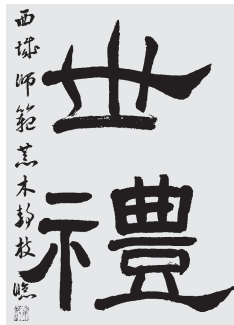 世禮
西城師範荒木静枝臨